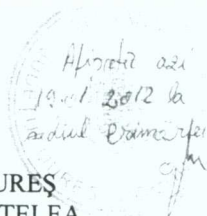 Afișată azi
19.01.2012 la
sediul Primăriei
UREȘ
TELEA